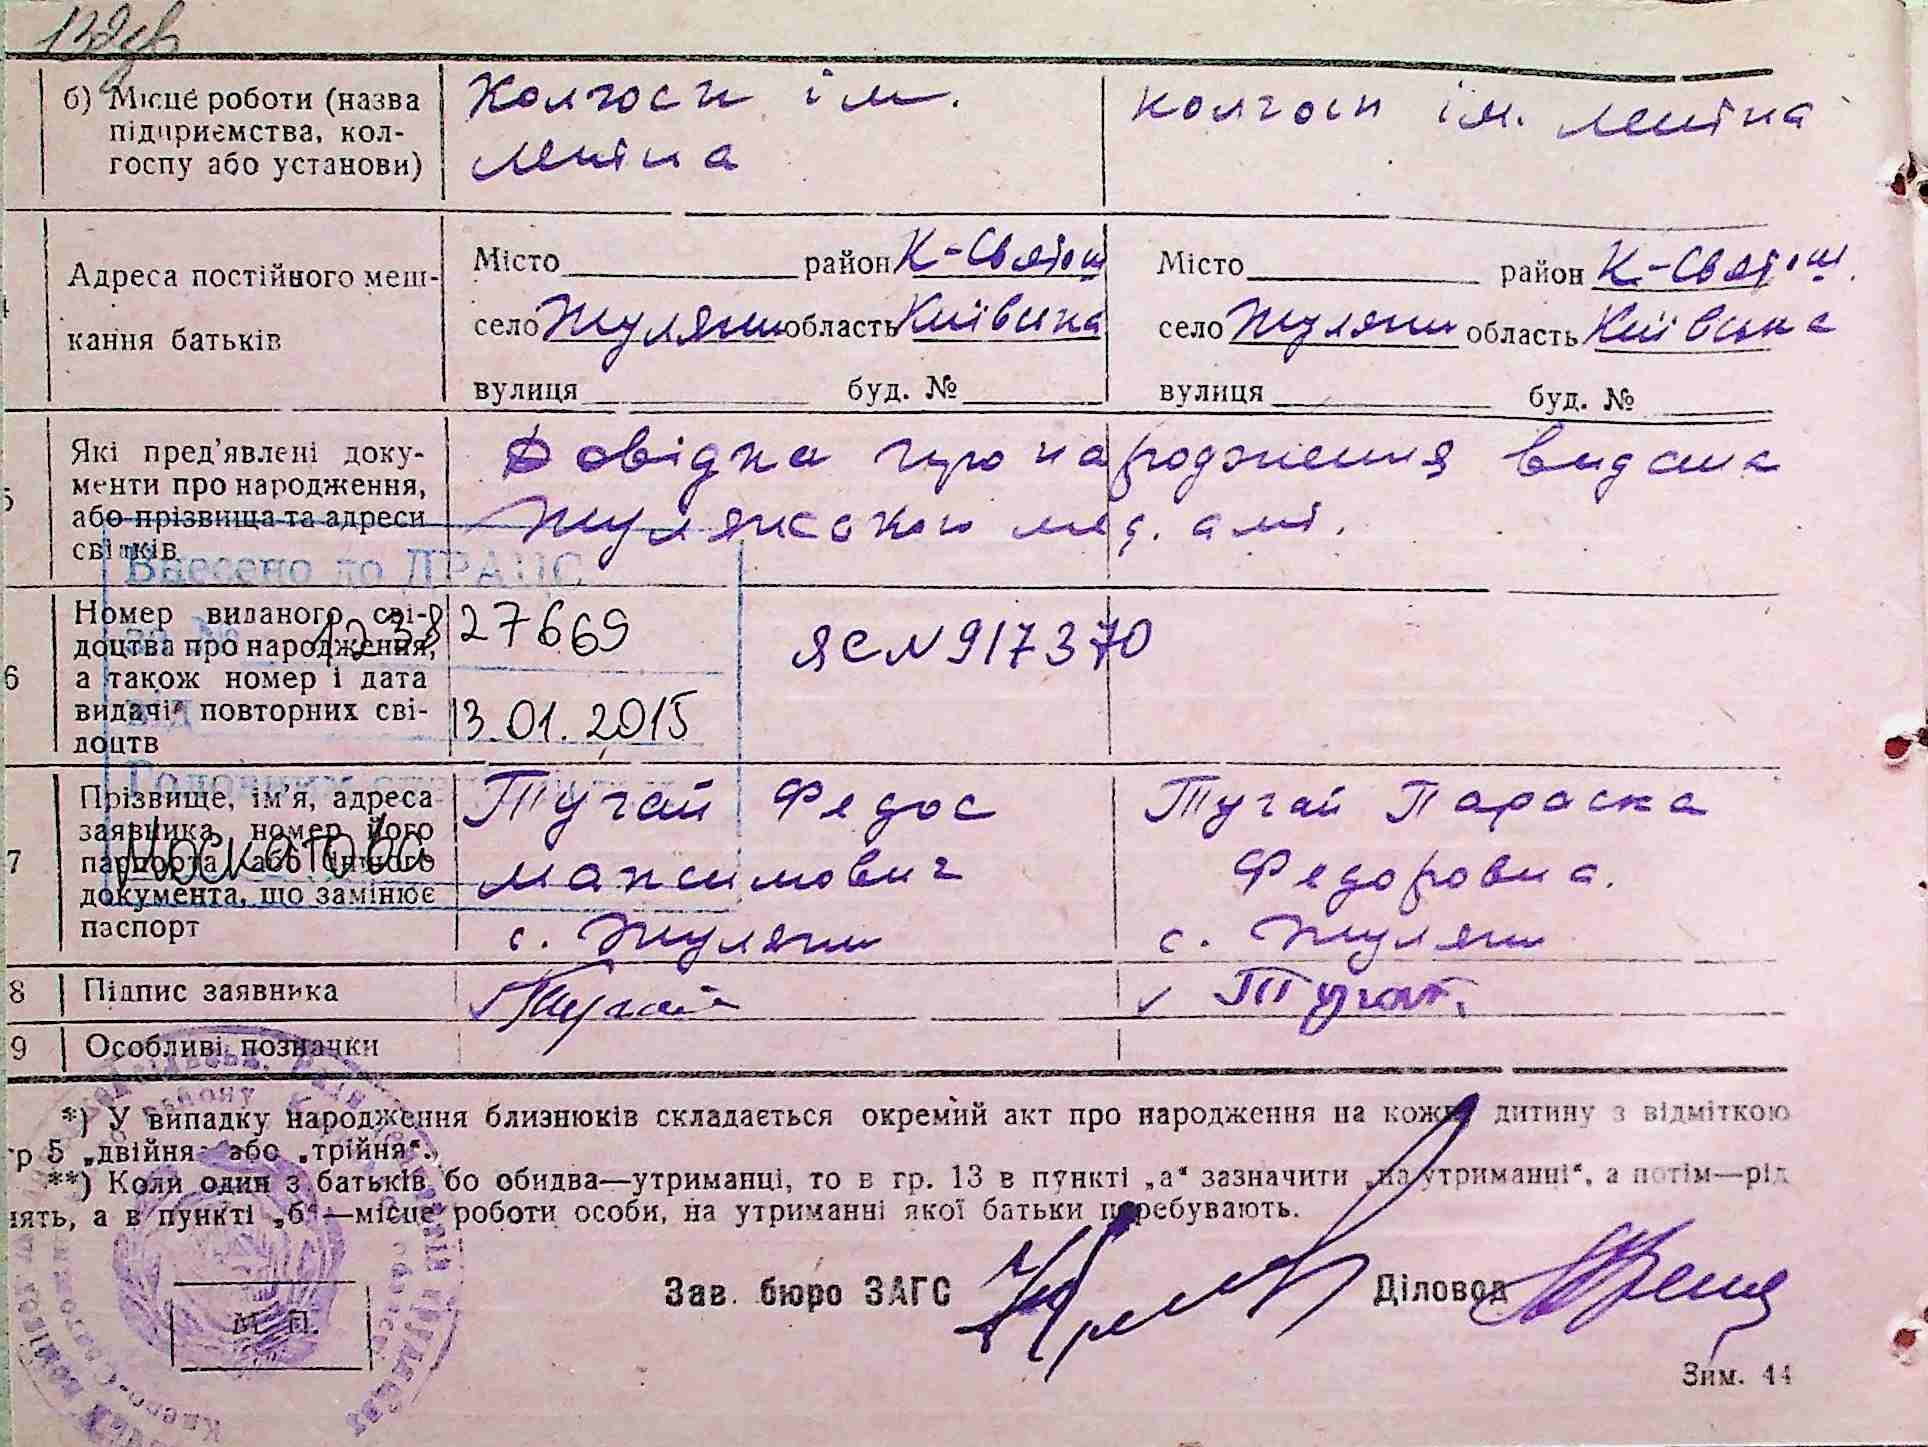 б) Місце роботи (назва
підприємства, кол-
госпу або установи)
Колгосп ім.
Леніна
колгосп ім. Леніна
Адреса постійного меш-
кання батьків
Місто район К-Святош
село Жуляни область Київська
вулиця буд. №
Місто район К-Святош.
село Жуляни область Київська
вулиця буд. №
5
Які пред'явлені доку-
менти про народження,
або прізвища та адреси
свідків
Довідка про народження видана
Жулянською мед. амб.
Внесено до ДРАЦС
за № 1238 27669
від 13.01.2015
Москатова
6
Номер виданого сві-
доцтва про народження,
а також номер і дата
видачі повторних сві-
доцтв
ЯС № 917370
7
Прізвище, ім'я, адреса
заявника, номер його
паспорта або іншого
документа, що замінює
паспорт
Тугай Федос
Максимович
с. Жуляни
Тугай Параска
Федоровна.
с. Жуляни
8 Підпис заявника
Тугай
Тугай
9 Особливі позначки
*) У випадку народження близнюків складається окремий акт про народження на кожну дитину з відміткою
гр 5 „двійня" або „трійня".
**) Коли один з батьків бо обидва—утриманці, то в гр. 13 в пункті „а" зазначити „на утриманні", а потім—рід
нять, а в пункті „б"—місце роботи особи, на утриманні якої батьки перебувають.
Зав. бюро ЗАГС
Діловод
М. П.
Зим. 44